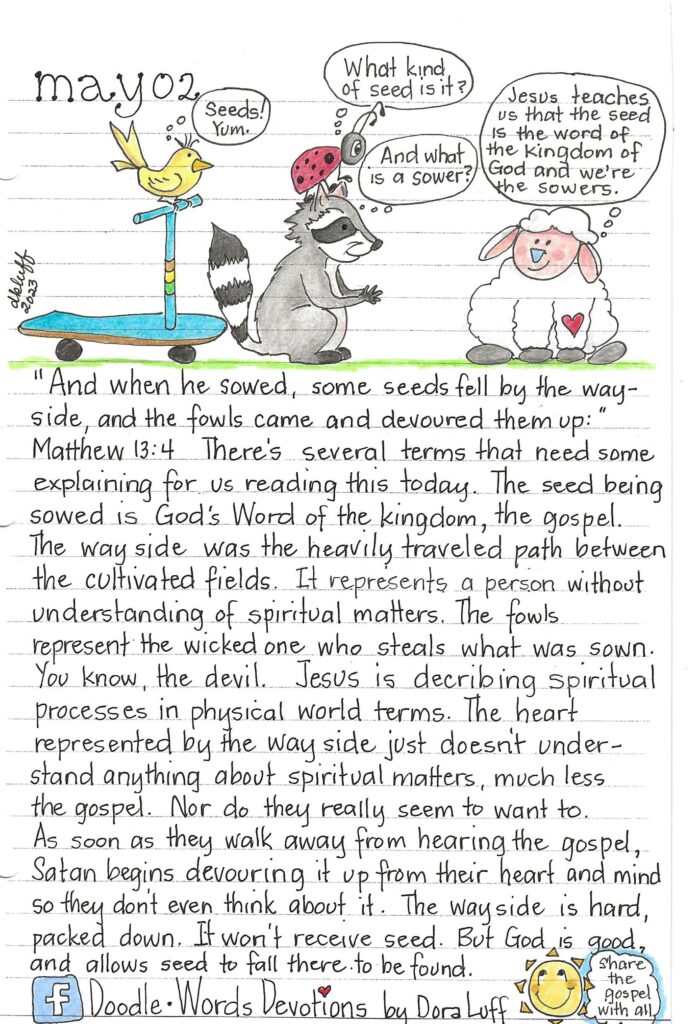 may 02
Seeds!
Yum.
What kind
of seed is it?
And what
is a sower?
Jesus teaches
us that the seed
is the word of
the kingdom of
God and we're
the sowers.
dkluff
2023
"And when he sowed, some seeds fell by the way-
side, and the fowls came and devoured them up:"
Matthew 13:4 There's several terms that need some
explaining for us reading this today. The seed being
sowed is God's Word of the kingdom, the gospel.
The way side was the heavily traveled path between
the cultivated fields. It represents a person without
understanding of spiritual matters. The fowls
represent the wicked one who steals what was sown.
You know, the devil. Jesus is decribing spiritual
processes in physical world terms. The heart
represented by the way side just doesn't under-
stand anything about spiritual matters, much less
the gospel. Nor do they really seem to want to.
As soon as they walk away from hearing the gospel,
Satan begins devouring it up from their heart and mind
so they don't even think about it. The wayside is hard,
packed down. It won't receive seed. But God is good,
and allows seed to fall there to be found.
f Doodle·Words Devotions by Dora Luff
Share
the
gospel
with all.